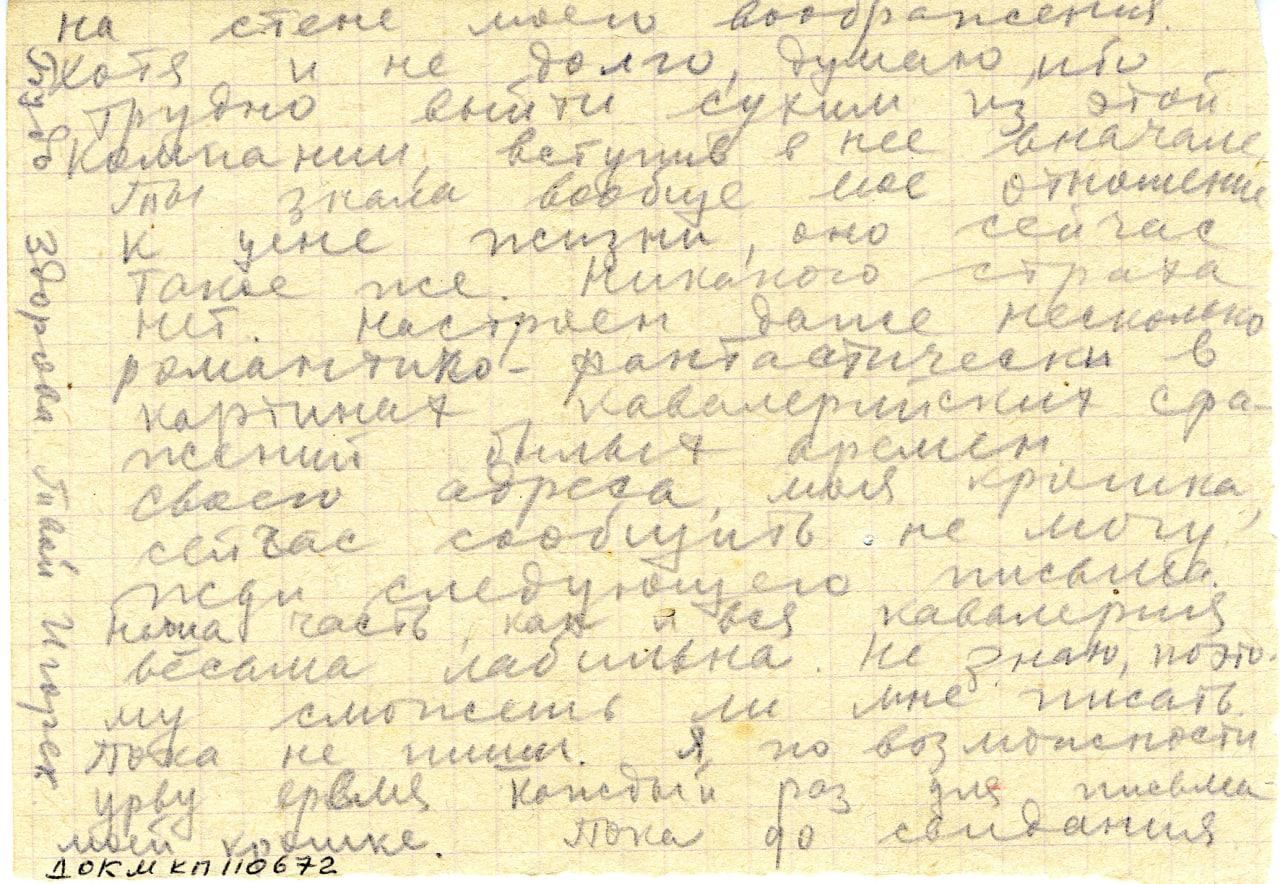 на стене моего воображения.
Хотя и не долго, думаю, ибо
трудно выйти сухим из этой
компании, вступив в нее вначале
Ты знала вообще мое отношение
к цене жизни, оно сейчас
такое же. Никакого страха
нет. Настроен даже несколько
романтико-фантастически в
картинах кавалерийских сра-
жений былых времен
своего адреса, моя крошка,
сейчас сообщить не могу,
жди следующего письма.
Наша часть, как и вся кавалерия
весьма лабильна. Не знаю, поэто-
му сможешь ли мне писать.
Пока не пиши. Я, по возможности
урву время каждый раз для письма
моей крошке. Пока до свидания
Будь здорова Твой Игорек
ДОКМ КП 110672